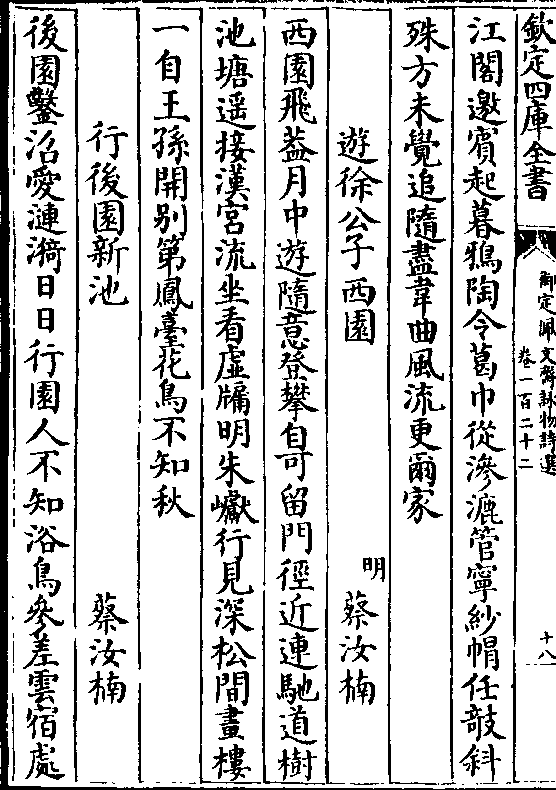 欽定四庫全書
御定佩文齋詠物詩選
卷一百二十二
十八
江閣邀賓起暮鴉陶令葛巾從滲漉管寧紗帽任敧斜
殊方未覺追隨盡韋曲風流更爾家
遊徐公子西園
明
蔡汝楠
西園飛葢月中遊隨意登攀自可留門徑近連馳道樹
池塘遥接漢宮流坐看虚牖明朱巘行見深松間畫樓
一自王孫開别第鳳臺花鳥不知秋
行後園新池
蔡汝楠
後園鑿沼愛漣漪日日行園人不知浴鳥參差雲宿處